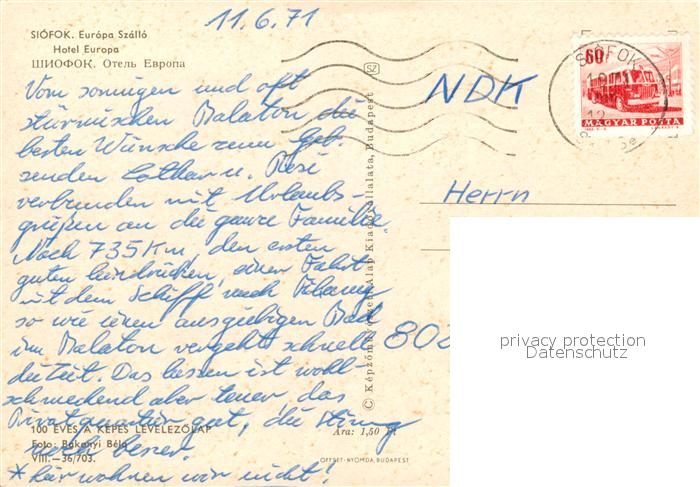 11.6.71
SIÓFOK. Európa Szálló
Hotel Europa
ШИОФОК. Отель Европа
Vom sonnigen und oft
stürmischen Balaton die
besten Wünsche zum Geb.
senden Lothar u. Rosi
verbunden mit Urlaubs-
grüßen an die ganze Familie.
Nach 735 Km, den ersten
guten Eindrücken, einer Fahrt
mit dem Schiff nach Tihany
so wie einen ausgiebigen Bad
im Balaton vergeht schnell
die Zeit. Das Essen ist wohl-
schmeckend aber teuer, das
Privatquartier gut, die Stimmung
noch besser.
* hier wohnen wir nicht!
100 ÉVES A KÉPES LEVELEZŐLAP
Foto: Bakonyi Béla
VIII.—36/703.
Ára: 1,50 Ft
OFFSET-NYOMDA, BUDAPEST
© Képzőművészeti Alap Kiadóvállalata, Budapest
SZ
NDK
Herrn
802
60
MAGYAR POSTA
SIÓFOK
privacy protection
Datenschutz